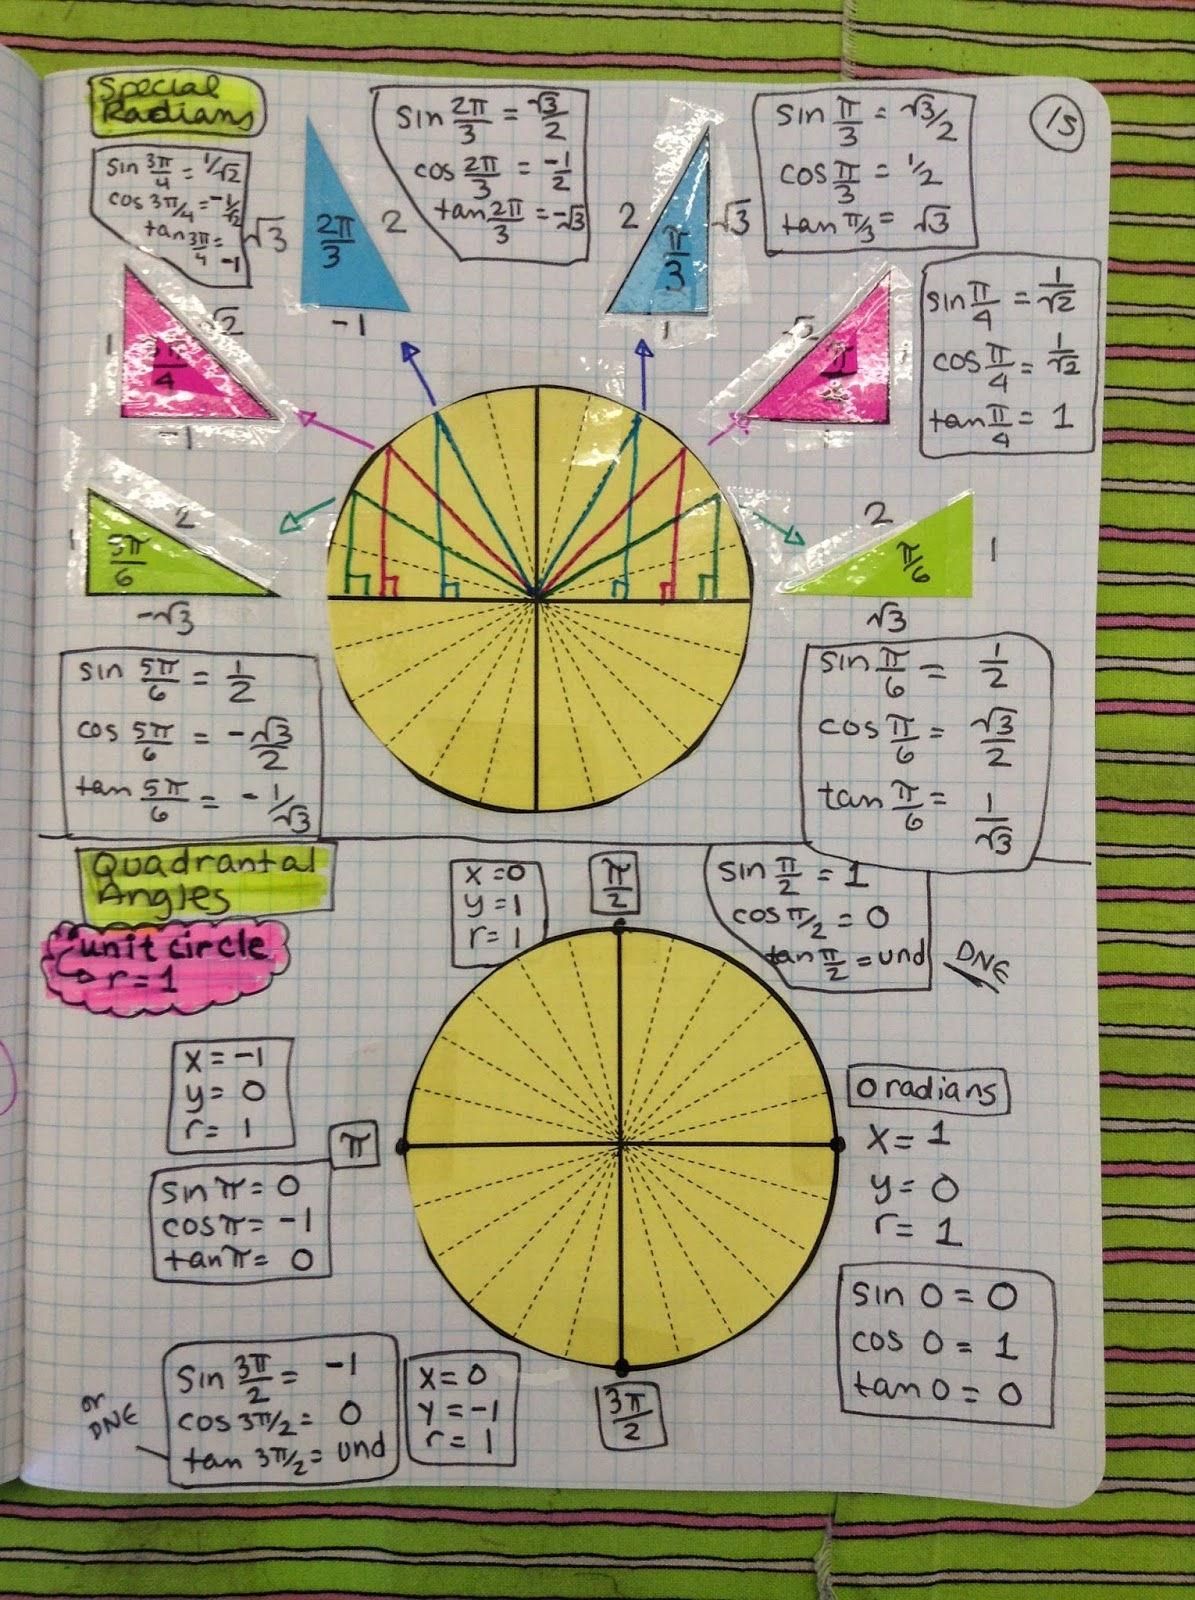 Special
Radians
15
sin 3π/4 = 1/√2
cos 3π/4 = -1/√2
tan 3π/4 =
-1
sin 2π/3 = √3/2
cos 2π/3 = -1/2
tan 2π/3 = -√3
sin π/3 = √3/2
cos π/3 = 1/2
tan π/3 = √3
√3
2π/3
2
-1
2
π/3
√3
1
sin π/4 = 1/√2
cos π/4 = 1/√2
tan π/4 = 1
1
√2
3π/4
-1
√2
π
1
2
5π/6
-√3
2
π/6
1
√3
sin 5π/6 = 1/2
cos 5π/6 = -√3/2
tan 5π/6 = -1/√3
sin π/6 = 1/2
cos π/6 = √3/2
tan π/6 = 1/√3
Quadrantal
Angles
unit circle
r = 1
x = 0
y = 1
r = 1
π/2
sin π/2 = 1
cos π/2 = 0
tan π/2 = und
DNE
x = -1
y = 0
r = 1
π
sin π = 0
cos π = -1
tan π = 0
0 radians
x = 1
y = 0
r = 1
sin 0 = 0
cos 0 = 1
tan 0 = 0
or
DNE
sin 3π/2 = -1
cos 3π/2 = 0
tan 3π/2 = und
x = 0
y = -1
r = 1
3π/2